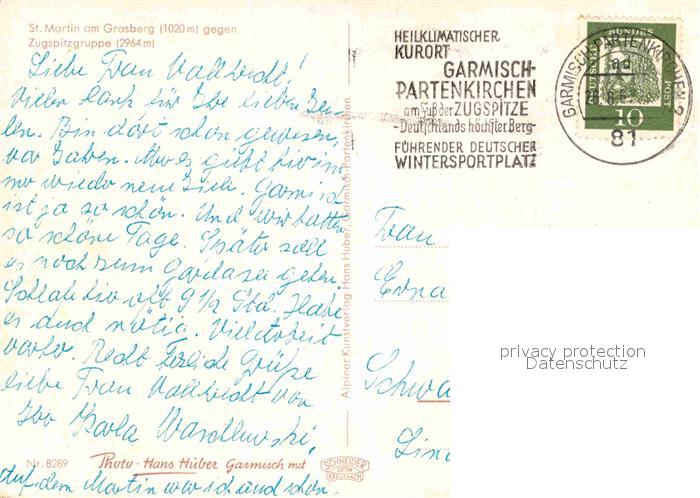 St. Martin am Grasberg (1020 m) gegen
Zugspitzgruppe (2964 m)
Liebe Frau Vallbracht!
Vielen Dank für Ihre lieben Zei-
len. Bin dort schon gewesen,
vor Jahren. Aber es gibt hier im
mer wieder neue Ziele. Garmisch
ist ja so schön. Und wir hatten
so schöne Tage. Später soll
es noch zum Gardasee gehen.
Schlafe hier oft 9 1/2 Std. Habe
es auch nötig. Viel Arbeit
vorher. Recht herzliche Grüße
liebe Frau Vallbracht von
Ihrer Karla
Nr. 8289 Photo-Hans Huber Garmisch mit
SCHNEIDER
OPTIK
KREUZNACH
Auf dem Martin war ich auch schon.
Alpiner Kunstverlag Hans Huber, Garmisch-Partenkirchen
HEILKLIMATISCHER
KURORT
GARMISCH-
PARTENKIRCHEN
am Fuß der ZUGSPITZE
-Deutschlands höchster Berg-
FÜHRENDER DEUTSCHER
WINTERSPORTPLATZ
GARMISCH-PARTENKIRCHEN 2
ad
81
10
Frau
Erna
Schwa
Lin
privacy protection
Datenschutz